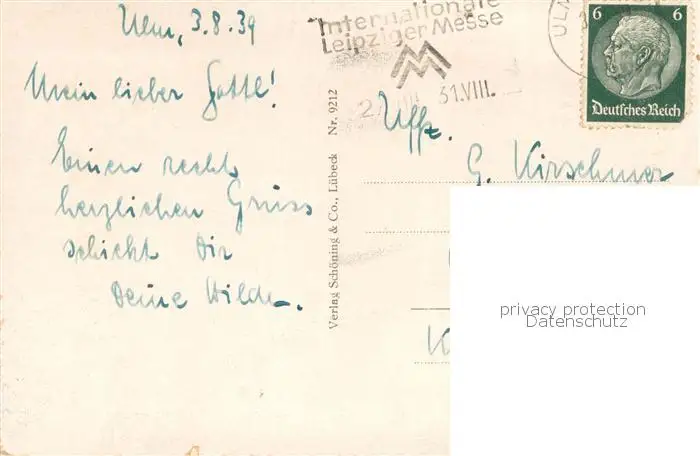 Ulm, 3.8.39
Mein lieber Gottl!
Einen recht
herzlichen Gruss
schickt Dir
Deine Hilde.
Verlag Schöning & Co., Lübeck Nr. 9212
Internationale
Leipziger Messe
M
31.VIII.
ULM
6 6
Deutsches Reich
Uffz.
G. Kirschner
K
privacy protection
Datenschutz